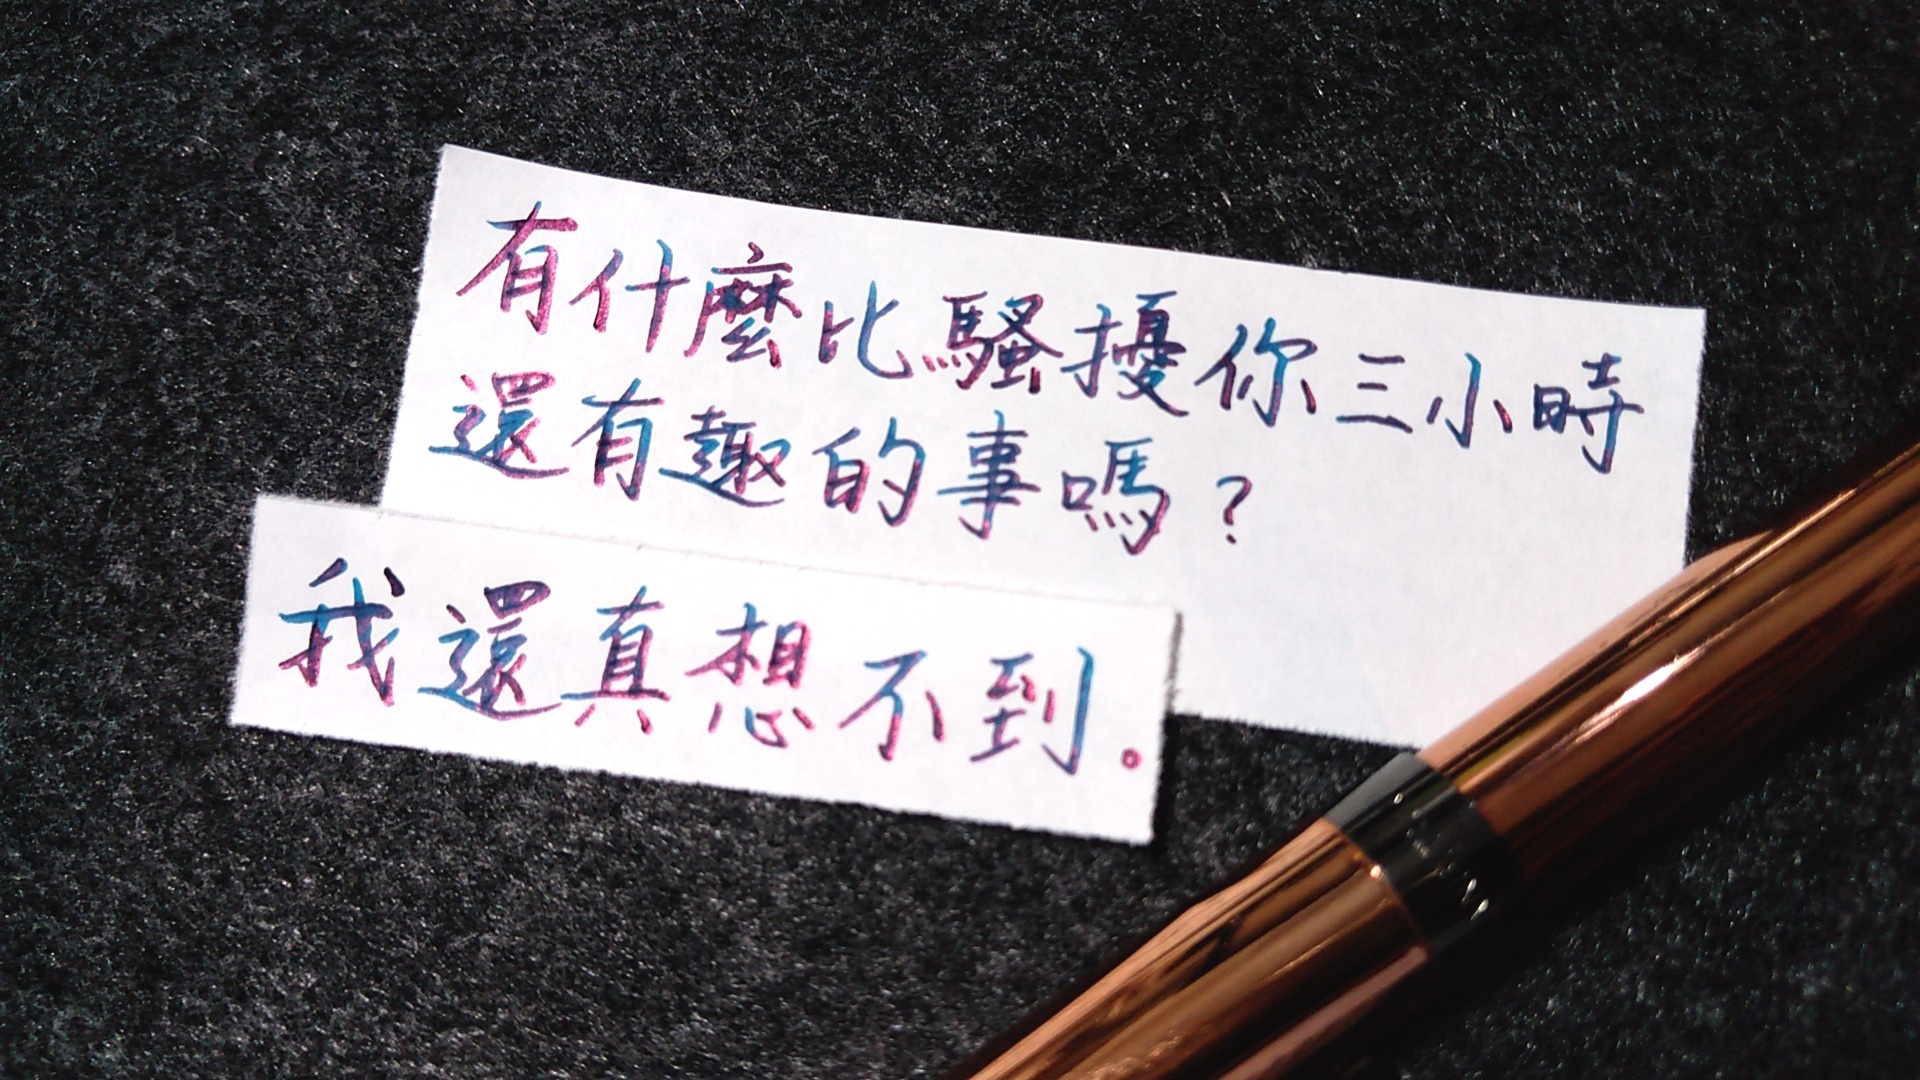 有什麼比騷擾你三小時
還有趣的事嗎?
我還真想不到。